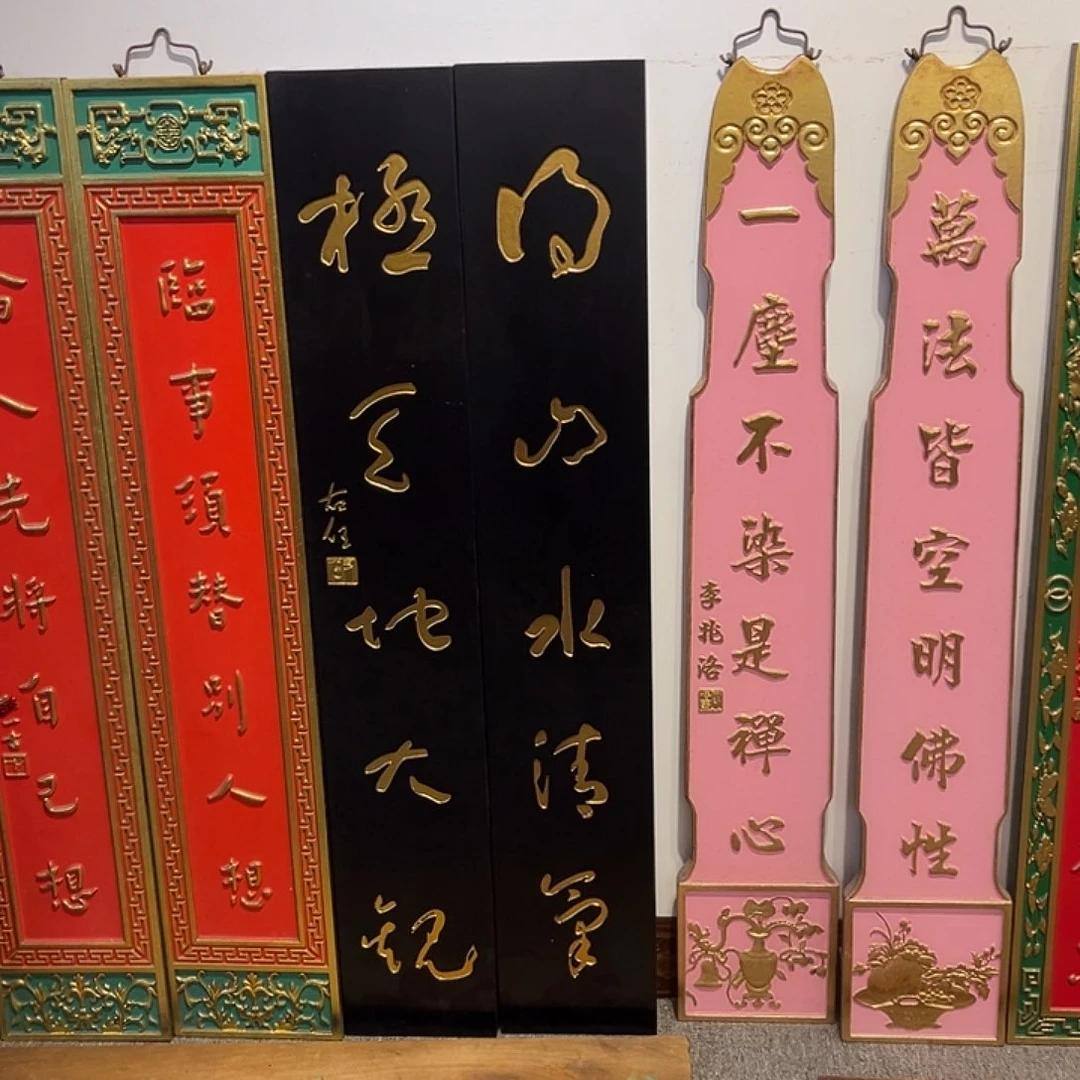 萬法皆空明佛性
一塵不染是禪心
李兆洛
得山水清氣
極天地大觀
右任
臨事須替別人想
人先將自己想